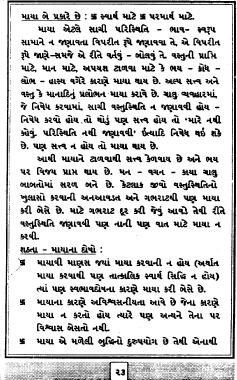 માયા બે પ્રકારે છે : 卐 સ્વાર્થ માટે 卐 પરમાર્થ માટે.
માયા એટલે સાચી પરિસ્થિતિ - ભાવ- સ્વરૂપ
સામાને ન જણાવતા વિપરીત રૂપે જણાવવા તે, એ વિપરીત
રૂપે જાણે-સમજે એ રીતે વર્તવું - બોલવું તે. વસ્તુની પ્રાપ્તિ
માટે, માન માટે, અપયશ ટાળવા માટે કે ભય - ક્રોધ -
લોભ - હાસ્ય વગેરે કારણે માયા થાય છે. અલ્પ સત્ત્વ અને
વસ્તુ કે માનાદિનું પ્રલોભન માયા કરાવે છે. ચાલુ વ્યવહારમાં,
જે નિષેધ કરવામાં, સાચી વસ્તુસ્થિતિ ન જણાવવી હોય -
નિષેધ કરવો હોય તો થોડું પણ સત્ત્વ હોય તો 'મારે નથી
કહેવું. પરિસ્થિતિ નથી જણાવવી' ઇત્યાદિ નિષેધ થઈ શકે
છે. પણ સત્ત્વ ન હોય તો માયા થાય છે.
આથી માયાને ટાળવાથી સત્ત્વ કેળવાય છે અને ભય
પર વિજય પ્રાપ્ત થાય છે. મન - વચન - કાયા ચાલુ
બાબતોમાં સરળ બને છે. કેટલાક જીવો વસ્તુસ્થિતિનો
ખુલાસો કરવાની અનઆવડત અને ગભરાટથી પણ માયા
કરી બેસે છે. માટે ગભરાટ દૂર કરી જેવું આવડે તેવી રીતે
વસ્તુસ્થિતિ જણાવવી પણ નાની પણ વાત માટે માયા ન
કરવી.
શઠતા - માયાના દોષો :
卐 માયાવી માણસ જ્યાં માયા કરવાની ન હોય (અર્થાત
માયા કરવાથી પણ તાત્કાલિક સ્વાર્થ સિદ્ધિ ન હોય)
ત્યાં પણ સ્વભાવદોષના કારણે માયા કરી બેસે છે.
卐 માયાના કારણે અવિશ્વસનીયતા આવે છે જેના કારણે
માયા ન કરતો હોય ત્યારે પણ અન્યને તેના પર
વિશ્વાસ બેસતો નથી.
卐 માયા એ મળેલી બુદ્ધિનો દુરુપયોગ છે તેથી એનાથી
૨૩